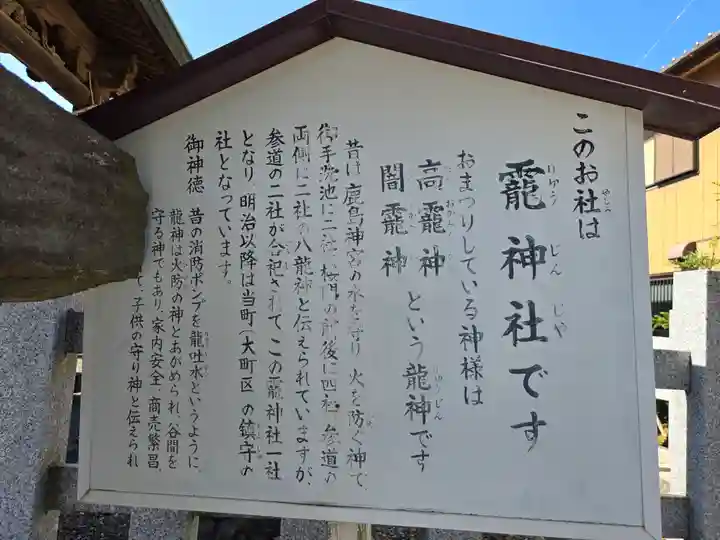 このお社は
やしろ
龗神社です
りゅう じん じゃ
おまつりしている神様は
高龗神
闇龗神
という龍神です
りゅうじん
昔は、鹿島神宮の水を守り、火を防ぐ神で、
御手洗池に二社、楼門の前後に四社、参道の
両側に二社の八龍神と伝えられていますが、
参道の二社が合祀されて、この龗神社一社
となり、明治以降は当町(大町区)の鎮守の
社となっています。
御神徳
昔の消防ポンプを龍吐水というように、
龍神は火防の神とあがめられ、谷間を
守る神でもあり、家内安全、商売繁昌、
て、子供の守り神と伝えられ